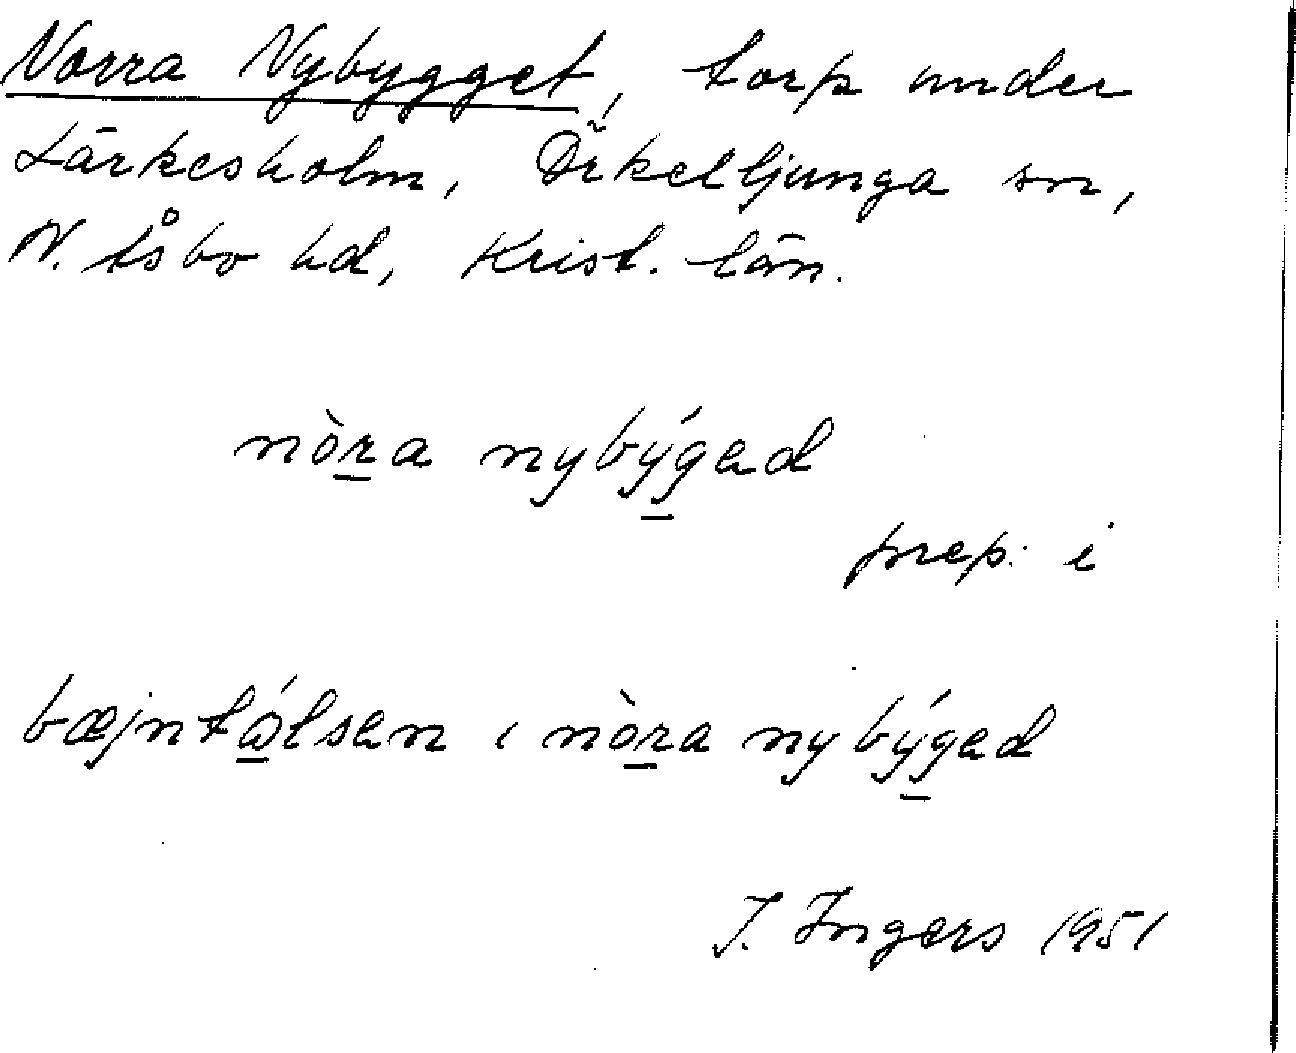 Norra Nybygget, torp under
Lärkesholm, Örkelljunga sn,
N. Åsbo hd, Krist. län.
nòra nybýgad
prep: i
bæjntólsen i nòra nybýgad
I. Ingers 1951